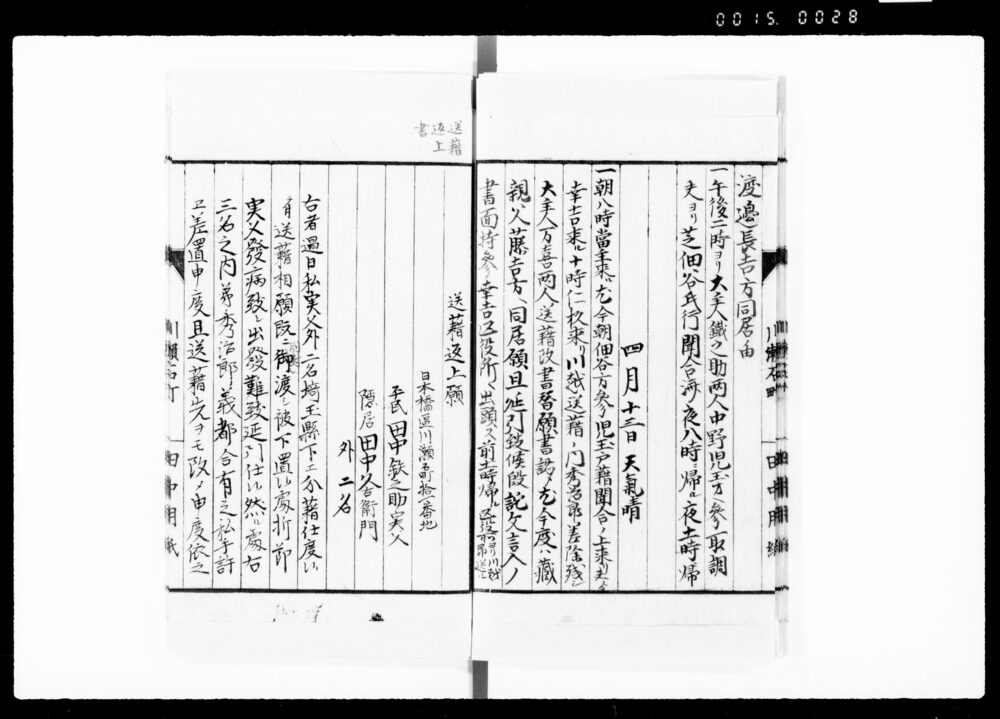 0015. 0028
渡邊長吉方同居由
一午後二時ヨリ大手人鐵之助両人中野児玉方ヘ参リ取調
夫ヨリ芝佃谷氏行聞合済夜八時ニ帰ル夜十時帰
四月十三日 天氣晴
一朝八時當
今朝佃谷方参リ児玉戸藉聞合ノ上来リ
幸吉来ル十時仁杦来リ川越送藉ノ内秀治郎差除
大手人万喜両人送藉改書替願書認メ
今度ハ藏
親父藤吉方ヘ同居願且延引
候段詫文言入ノ
書面持参幸吉区役所ヘ出頭ス前十時帰ル
送藉返上書
送藉返上願
日本橋區川瀬石町拾一番地
平民 田中鉄之助実父
隠居 田中久右衛門
外二名
右者過日私実父外二名埼玉縣下ニ分藉仕度
ニ付送藉相願既ニ御渡シ被下置候處折節
実父發病致シ出發難致延引仕候然ル處右
三名之内弟秀治郎義都合有之私手許
ニ差置申度且送藉先ヲモ改メ申度依之
川瀬石町
田中用紙